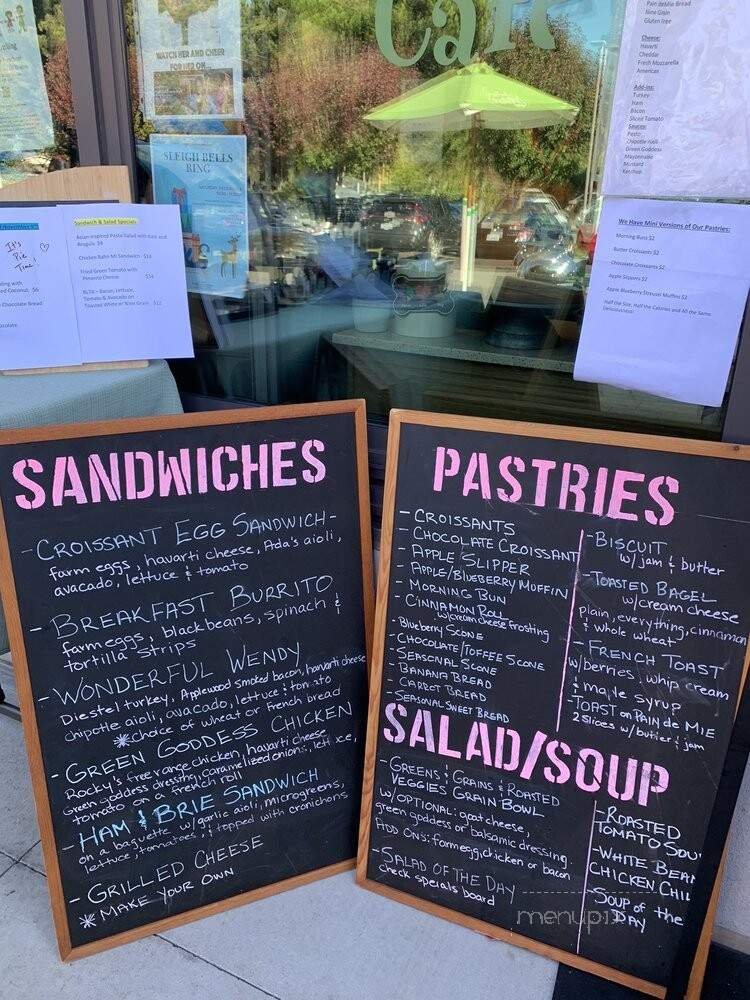 Café
WATCH HER AND CHEER
FOR HER ON
SLEIGH BELLS
RING
It's
Pie
Time!
Coconut $6
Chocolate Bread
Sandwich & Salad Specials
Asian-inspired Pasta Salad with Kale and
Arugula $9
Chicken Bahn Mi Sandwich $14
Fried Green Tomato with
Pimento Cheese $14
BLTA – Bacon, Lettuce,
Tomato & Avocado on
Toasted White or Nine Grain $12
Pain deMie Bread
Nine Grain
Gluten Free
Cheese:
Havarti
Cheddar
Fresh Mozzarella
American
Add-ins:
Turkey
Ham
Bacon
Sliced Tomato
Sauces:
Pesto
Chipotle Aioli
Green Goddess
Mayonnaise
Mustard
Ketchup
We Have Mini Versions of Our Pastries:
Morning Buns $2
Butter Croissants $2
Chocolate Croissants $2
Apple Slippers $2
Apple Blueberry Streusel Muffins $2
Half the Size, Half the Calories and All the Same
Deliciousness!
SANDWICHES
- CROISSANT EGG SANDWICH -
farm eggs, havarti cheese, Ada's aioli,
avocado, lettuce & tomato
- BREAKFAST BURRITO
farm eggs, black beans, spinach &
tortilla strips
- WONDERFUL WENDY
Diestel turkey, Applewood smoked bacon, havarti cheese
chipotle aioli, avocado, lettuce & tomato
*choice of wheat or French bread
- GREEN GODDESS CHICKEN
Rocky's free range chicken, havarti cheese
Green goddess dressing, caramelized onions, lettuce,
tomato on a french roll
- HAM & BRIE SANDWICH
on a baguette w/ garlic aioli, microgreens,
lettuce, tomatoes, & topped with cronichons
- GRILLED CHEESE
* MAKE YOUR OWN
PASTRIES
- CROISSANTS
- CHOCOLATE CROISSANT
- APPLE SLIPPER
- APPLE/BLUEBERRY MUFFIN
- MORNING BUN
- CINNAMON ROLL
w/cream cheese frosting
- Blueberry SCONE
- CHOCOLATE/TOFFEE SCONE
- SEASONAL SCONE
- BANANA BREAD
- CARROT BREAD
- SEASONAL SWEET BREAD
- BISCUIT
w/ jam & butter
- TOASTED BAGEL
w/cream cheese
plain, everything, cinnamon
& whole wheat
- FRENCH TOAST
w/berries, whip cream
& maple syrup
- TOAST on PAIN de MIE
2 slices w/butter & jam
SALAD/SOUP
- GREENS & GRAINS & ROASTED
VEGGIES GRAIN BOWL
w/OPTIONAL: goat cheese,
green goddess or balsamic dressing.
ADD ONS: farm egg, chicken or bacon
- SALAD OF THE DAY
check specials board
- ROASTED
TOMATO SOU
- WHITE BEAN
CHICKEN CHIL
- SOUP of the
DAY
menupix